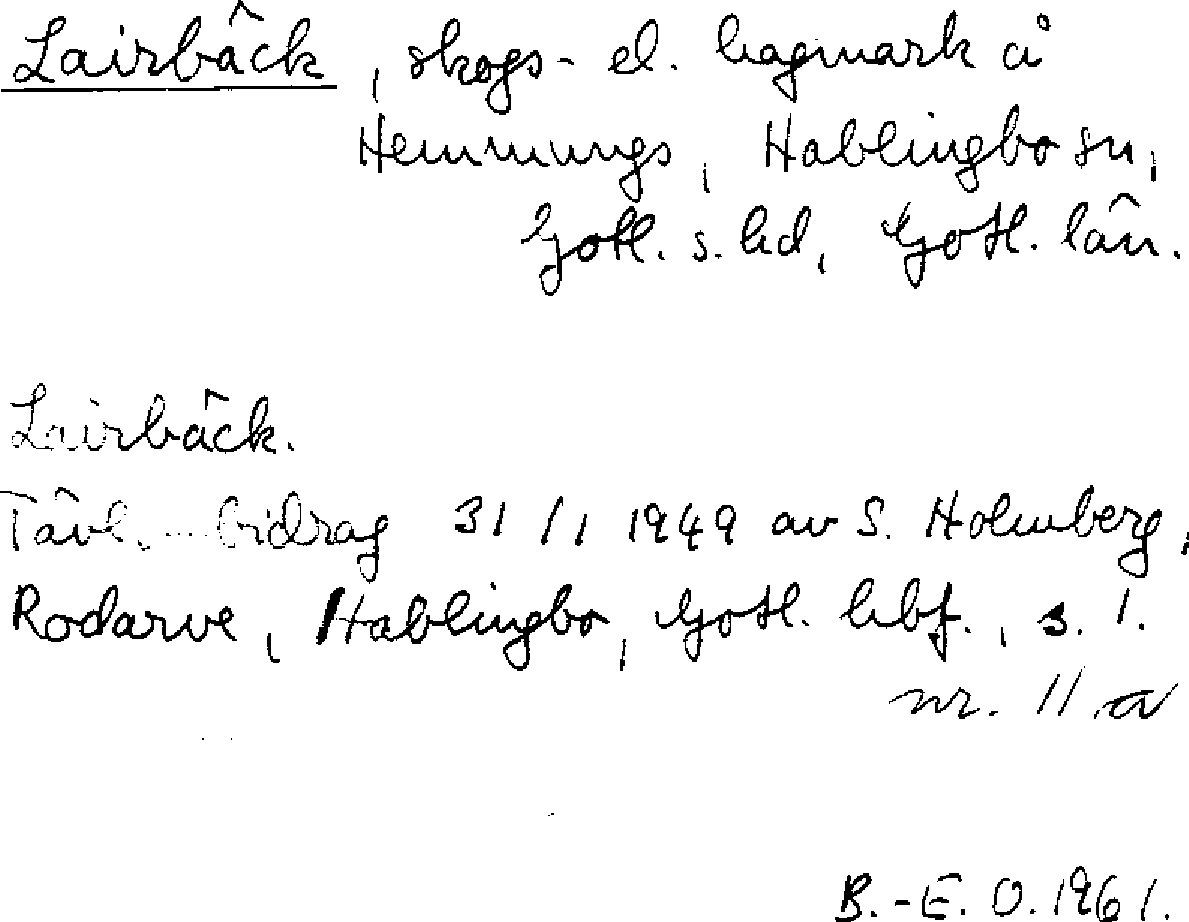 Lairbäck, skogs- el. hagmark å
Hemmungs, Hablingbo sn,
Gotl. s. hd, Gotl. län.
Lairbäck.
Tävl. bidrag 31/1 1949 av S. Holmberg,
Rodarve, Hablingbo, Gotl. hbf., s. 1.
nr. 11 a
B.-E. O. 1961.